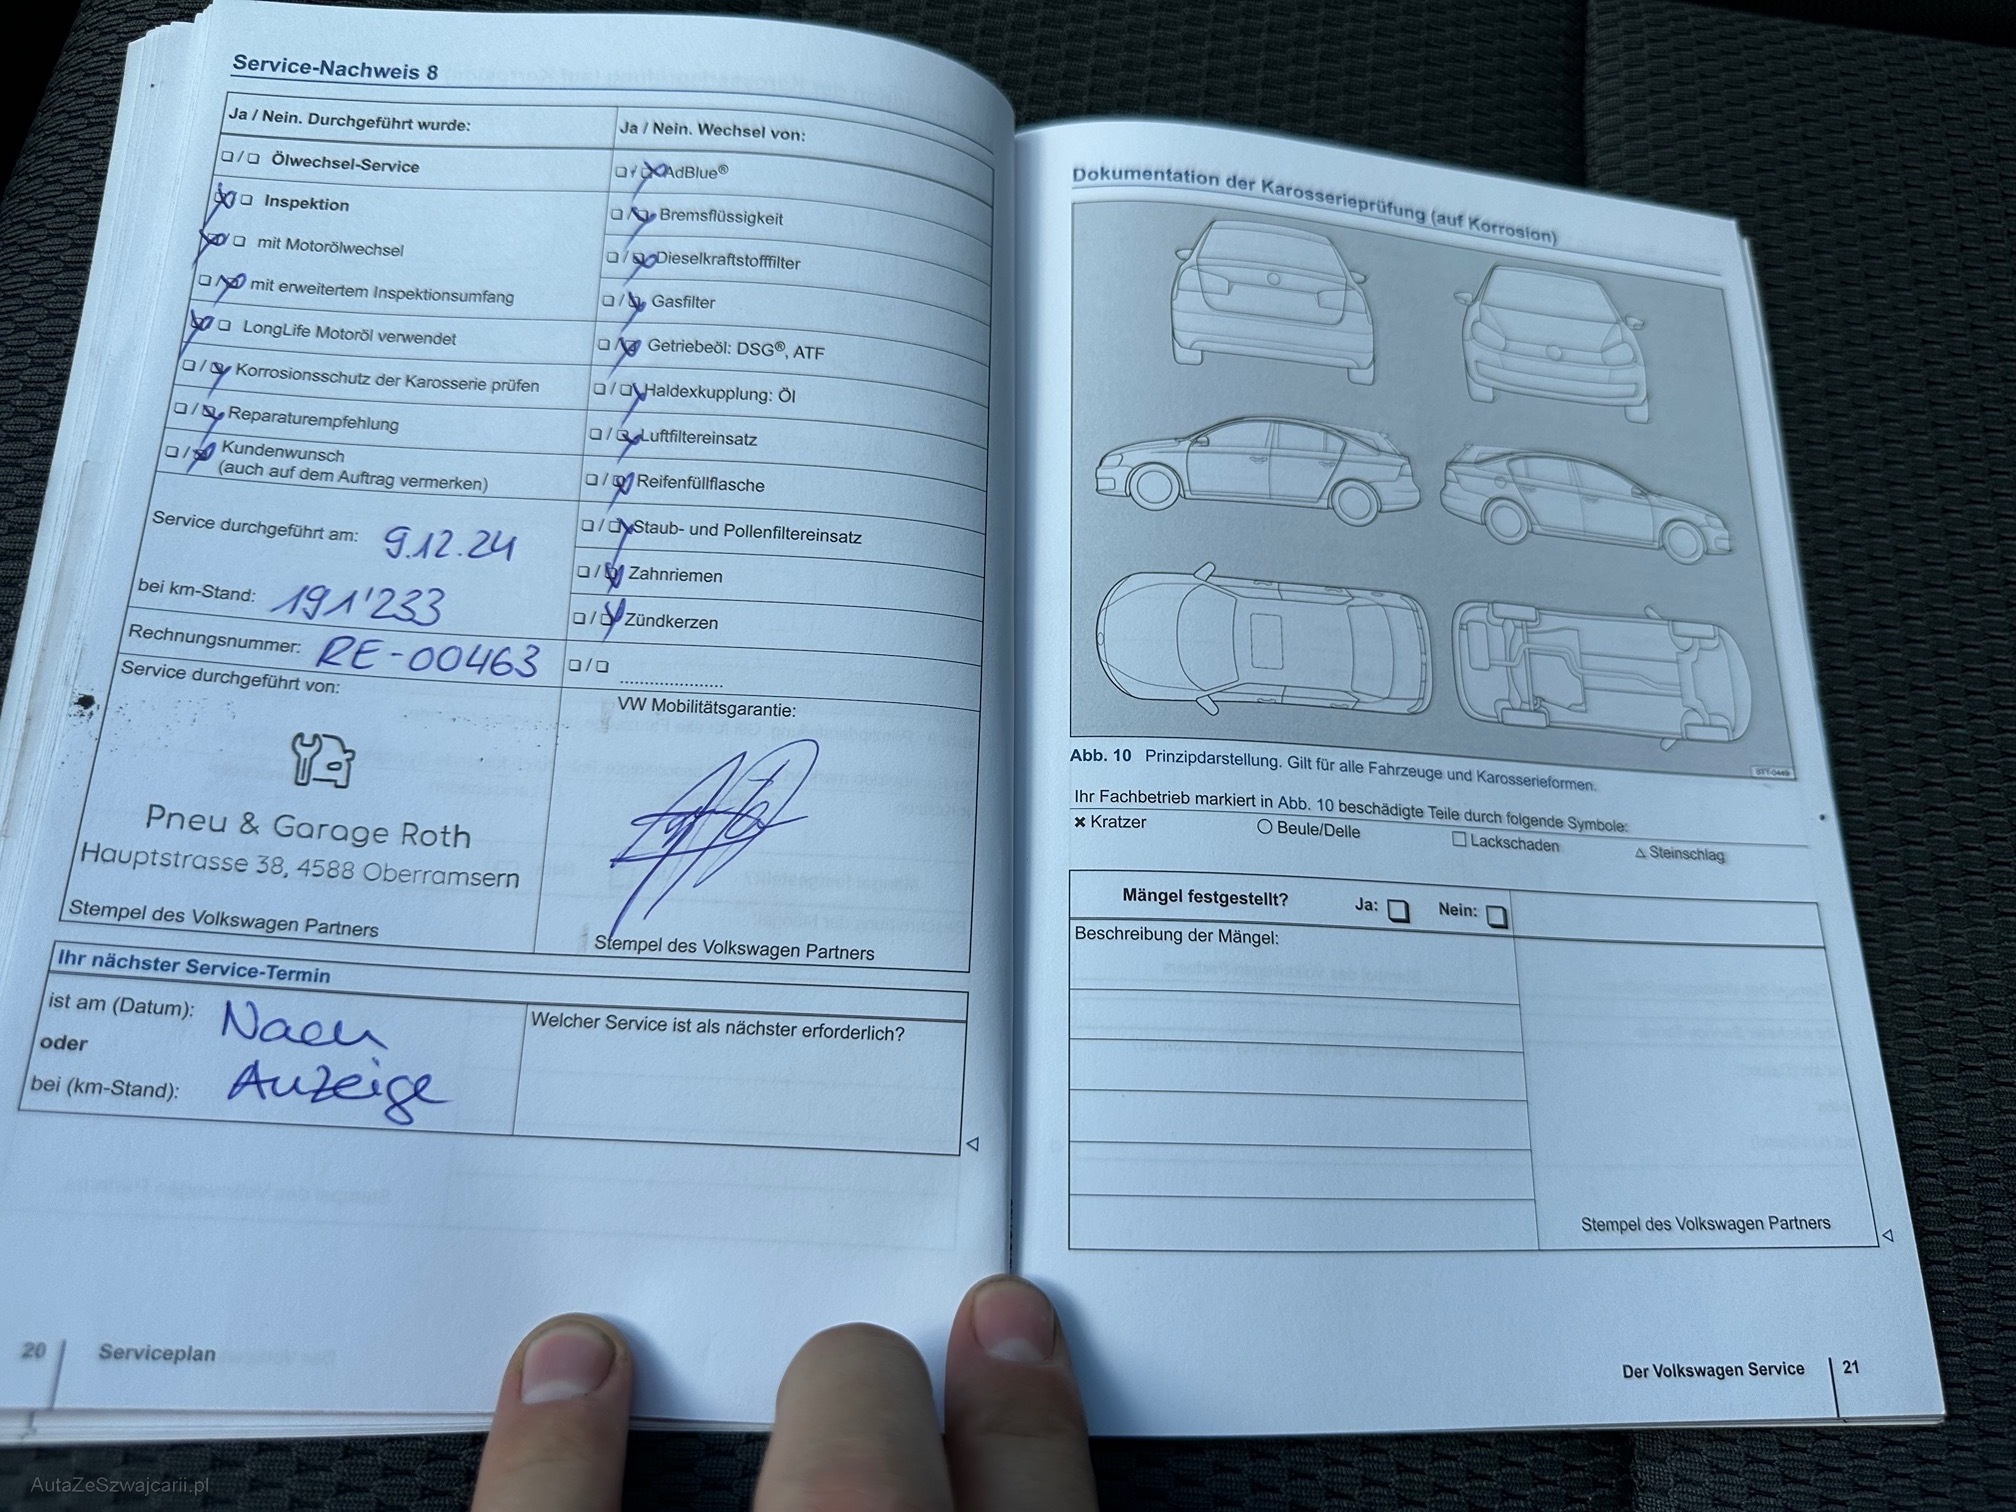 Service-Nachweis 8
Ja / Nein. Durchgeführt wurde:
❏ / ❏ Ölwechsel-Service
❏ Inspektion
❏ mit Motorölwechsel
❏ / mit erweitertem Inspektionsumfang
❏ LongLife Motoröl verwendet
❏ / Korrosionsschutz der Karosserie prüfen
❏ / Reparaturempfehlung
❏ / Kundenwunsch
(auch auf dem Auftrag vermerken)
Service durchgeführt am: 9.12.24
bei km-Stand: 191'233
Rechnungsnummer: RE-00463
Service durchgeführt von:
Pneu & Garage Roth
Hauptstrasse 38, 4588 Oberramsern
Stempel des Volkswagen Partners
Ja / Nein. Wechsel von:
❏ / AdBlue®
❏ / Bremsflüssigkeit
❏ / Dieselkraftstofffilter
❏ / Gasfilter
❏ / Getriebeöl: DSG®, ATF
❏ / Haldexkupplung: Öl
❏ / Luftfiltereinsatz
❏ / Reifenfüllflasche
❏ / Staub- und Pollenfiltereinsatz
❏ / Zahnriemen
❏ / Zündkerzen
❏ / ❏ ......................
VW Mobilitätsgarantie:
Stempel des Volkswagen Partners
Ihr nächster Service-Termin
ist am (Datum): Nach
oder
bei (km-Stand): Anzeige
Welcher Service ist als nächster erforderlich?
20 Serviceplan
Dokumentation der Karosserieprüfung (auf Korrosion)
Abb. 10 Prinzipdarstellung. Gilt für alle Fahrzeuge und Karosserieformen.
Ihr Fachbetrieb markiert in Abb. 10 beschädigte Teile durch folgende Symbole:
✖ Kratzer ○ Beule/Delle □ Lackschaden △ Steinschlag
Mängel festgestellt? Ja: ❏ Nein: ❏
Beschreibung der Mängel:
Stempel des Volkswagen Partners
Der Volkswagen Service 21
AutaZeSzwajcarii.pl